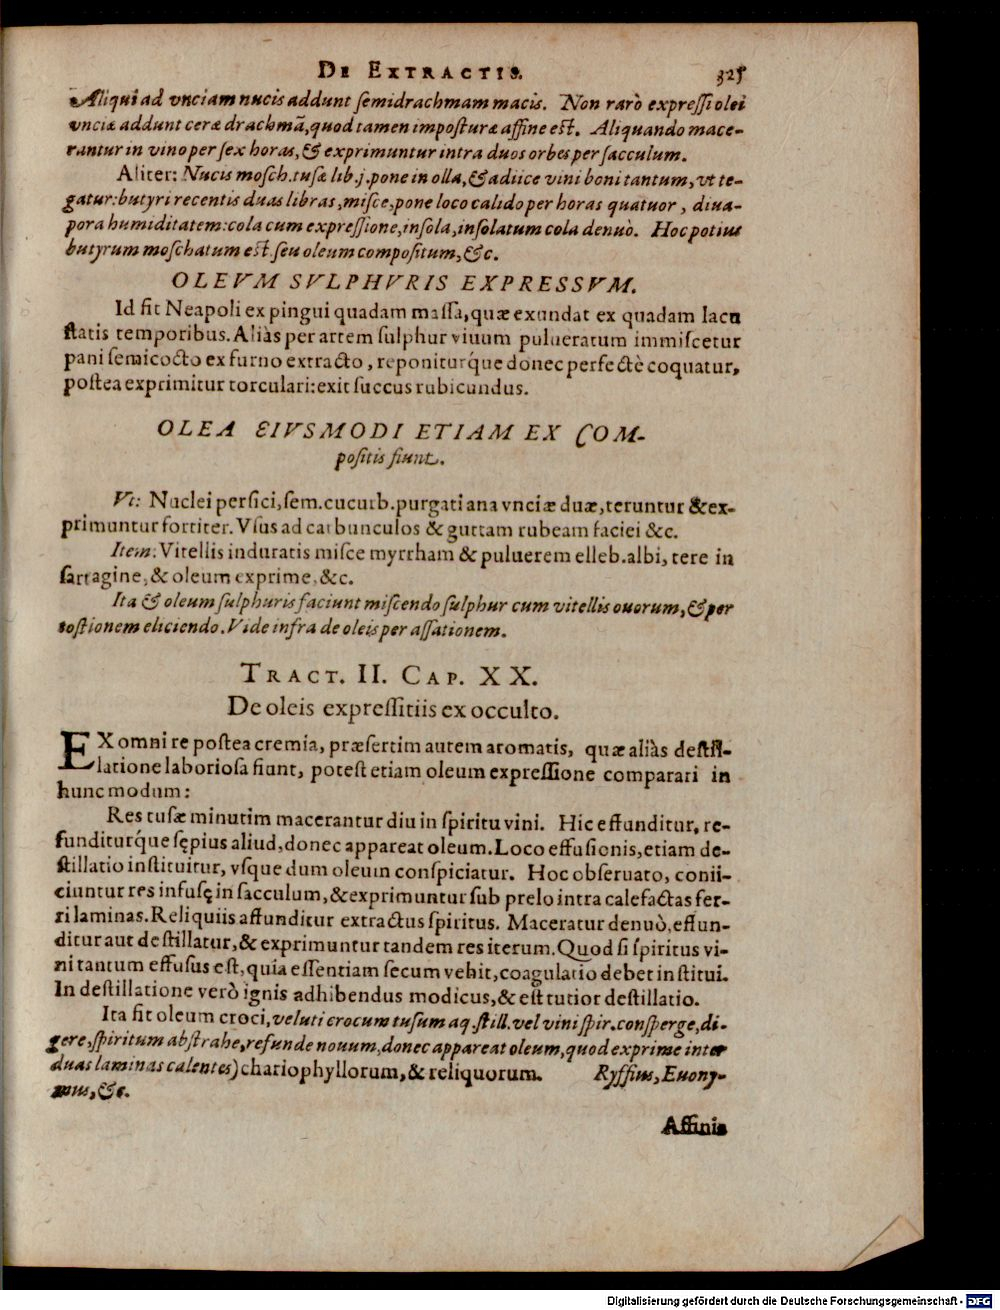 DE EXTRACTIS. 325
Aliqui ad vnciam nucis addunt semidrachmam macis. Non rarò expressi olei
vnciæ addunt ceræ drachmã, quod tamen imposturæ affine est. Aliquando mace-
rantur in vino per sex horas, & exprimuntur intra duos orbes per sacculum.
Aliter: Nucis mosch. tusæ lib. j. pone in olla, & adiice vini boni tantum, vt te-
gatur: butyri recentis duas libras, misce, pone loco calido per horas quatuor, diua-
pora humiditatem: cola cum expressione, insola, insolatum cola denuò. Hoc potius
butyrum moschatum est. seu oleum compositum, &c.
OLEVM SVLPHVRIS EXPRESSVM.
Id fit Neapoli ex pingui quadam massa, quæ exundat ex quadam lacu
statis temporibus. Aliàs per artem sulphur viuum pulueratum immiscetur
pani semicocto ex furno extracto, reponiturq́ue donec perfectè coquatur,
postea exprimitur torculari: exit succus rubicundus.
OLEA EIVSMODI ETIAM EX COM-
positis fiunt.
Vt: Nuclei persici, sem. cucurb. purgati ana vnciæ duæ, teruntur & ex-
primuntur fortiter. Vsus ad carbunculos & guttam rubeam faciei &c.
Item: Vitellis induratis misce myrrham & puluerem elleb. albi, tere in
sartagine, & oleum exprime, &c.
Ita & oleum sulphuris faciunt miscendo sulphur cum vitellis ouorum, & per
tostionem eliciendo. Vide infra de oleis per assationem.
TRACT. II. CAP. XX.
De oleis expressitiis ex occulto.
EX omni re postea cremia, præsertim autem aromatis, quæ aliàs destil-
latione laboriosa fiunt, potest etiam oleum expressione comparari in
hunc modum:
Res tusæ minutim macerantur diu in spiritu vini. Hic effunditur, re-
funditurq́ue sępius aliud, donec appareat oleum. Loco effusionis, etiam de-
stillatio instituitur, vsque dum oleum conspiciatur. Hoc obseruato, conii-
ciuntur res infusę in sacculum, & exprimuntur sub prelo intra calefactas fer-
ri laminas. Reliquiis affunditur extractus spiritus. Maceratur denuò, effun-
ditur aut destillatur, & exprimuntur tandem res iterum. Quod si spiritus vi-
ni tantum effusus est, quia essentiam secum vehit, coagulatio debet institui.
In destillatione verò ignis adhibendus modicus, & est tutior destillatio.
Ita fit oleum croci, veluti crocum tusum aq. still. vel vini spir. consperge, di-
gere, spiritum abstrahe, refunde nouum, donec appareat oleum, quod exprime inter
duas laminas calentes) chariophyllorum, & reliquorum. Ryffius, Euony-
mus, &c.
Affinis
Digitalisierung gefördert durch die Deutsche Forschungsgemeinschaft - DFG